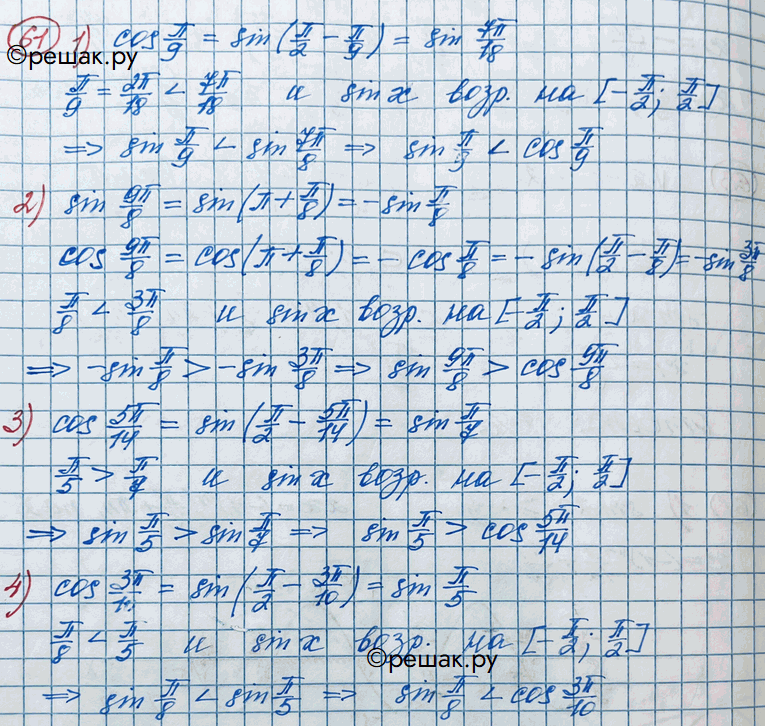 61 1) cos π/9 = sin(π/2 − π/9) = sin 7π/18
©решак.ру
π/9 = 2π/18 < 7π/18 и sin x возр. на [−π/2; π/2]
⇒ sin π/9 < sin 7π/8 ⇒ sin π/9 < cos π/9
2) sin 9π/8 = sin(π + π/8) = −sin π/8
cos 9π/8 = cos(π + π/8) = − cos π/8 = − sin(π/2 − π/8) = −sin 3π/8
π/8 < 3π/8 и sin x возр. на [−π/2; π/2]
⇒ −sin π/8 > −sin 3π/8 ⇒ sin 9π/8 > cos 9π/8
3) cos 5π/14 = sin(π/2 − 5π/14) = sin π/7
π/5 > π/7 и sin x возр. на [−π/2; π/2]
⇒ sin π/5 > sin π/7 ⇒ sin π/5 > cos 5π/14
4) cos 3π/10 = sin(π/2 − 3π/10) = sin π/5
π/8 < π/5 и sin x возр. на [−π/2; π/2]
©решак.ру
⇒ sin π/8 < sin π/5 ⇒ sin π/8 < cos 3π/10